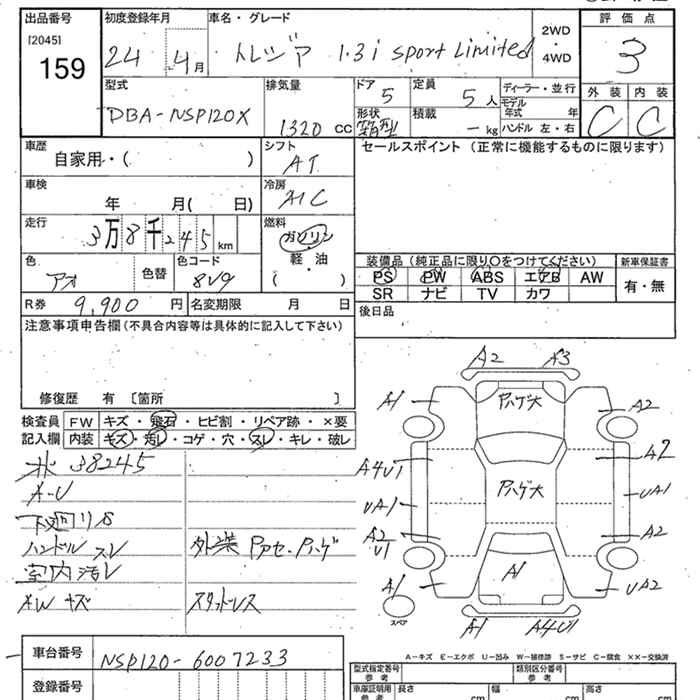 出品番号 初度登録年月 車名・グレード 2WD・4WD 評価点
[2045] 159 24 4月 トレジア 1.3i sport Limited 3
型式 排気量 ドア 5 定員 5人 ディーラー・並行 外装 内装
DBA-NSP120X 1320 cc 形状 箱型 積載 - kg モデル年式 年 C C
ハンドル 左・右
車歴 シフト セールスポイント (正常に機能するものに限ります)
自家用・( ) AT
車検 冷房
年 月( 日) A/C
走行 燃料
3万8千245km ガソリン・軽油 ( )
装備品 (純正品に限り○をつけてください) 新車保証書
色 色替 色コード
アオ 8V9
PS PW ABS エアB AW 有・無
SR ナビ TV カワ
R券 9,900円 名変期限 月 日
後日品
注意事項申告欄 (不具合内容等は具体的に記入して下さい)
修復歴 有 [箇所 ]
検査員 FW キズ・飛石・ヒビ割・リペア跡・×要
記入欄 内装 キズ・汚レ・コゲ・穴・スレ・キレ・破レ
38245
A-U
下廻リS
ハンドル スレ
室内汚レ
AW キズ
外装 Pアセ・Pハゲ
スタットレス
A2 A3
A1 Pハゲ大 A2
A4U1 A2
UA1 Pハゲ大 UA1
A2 U1 A2
A1 A1 UA2
スペア A1 A4U1
A-キズ E-エクボ U-凹み W-補修跡 S-サビ C-腐食 ××-交換済
車台番号 NSP120-6007233
型式指定番号 参考 類別区分番号 参考
登録番号 車庫証明用 参考 長さ cm 幅 cm 高さ cm